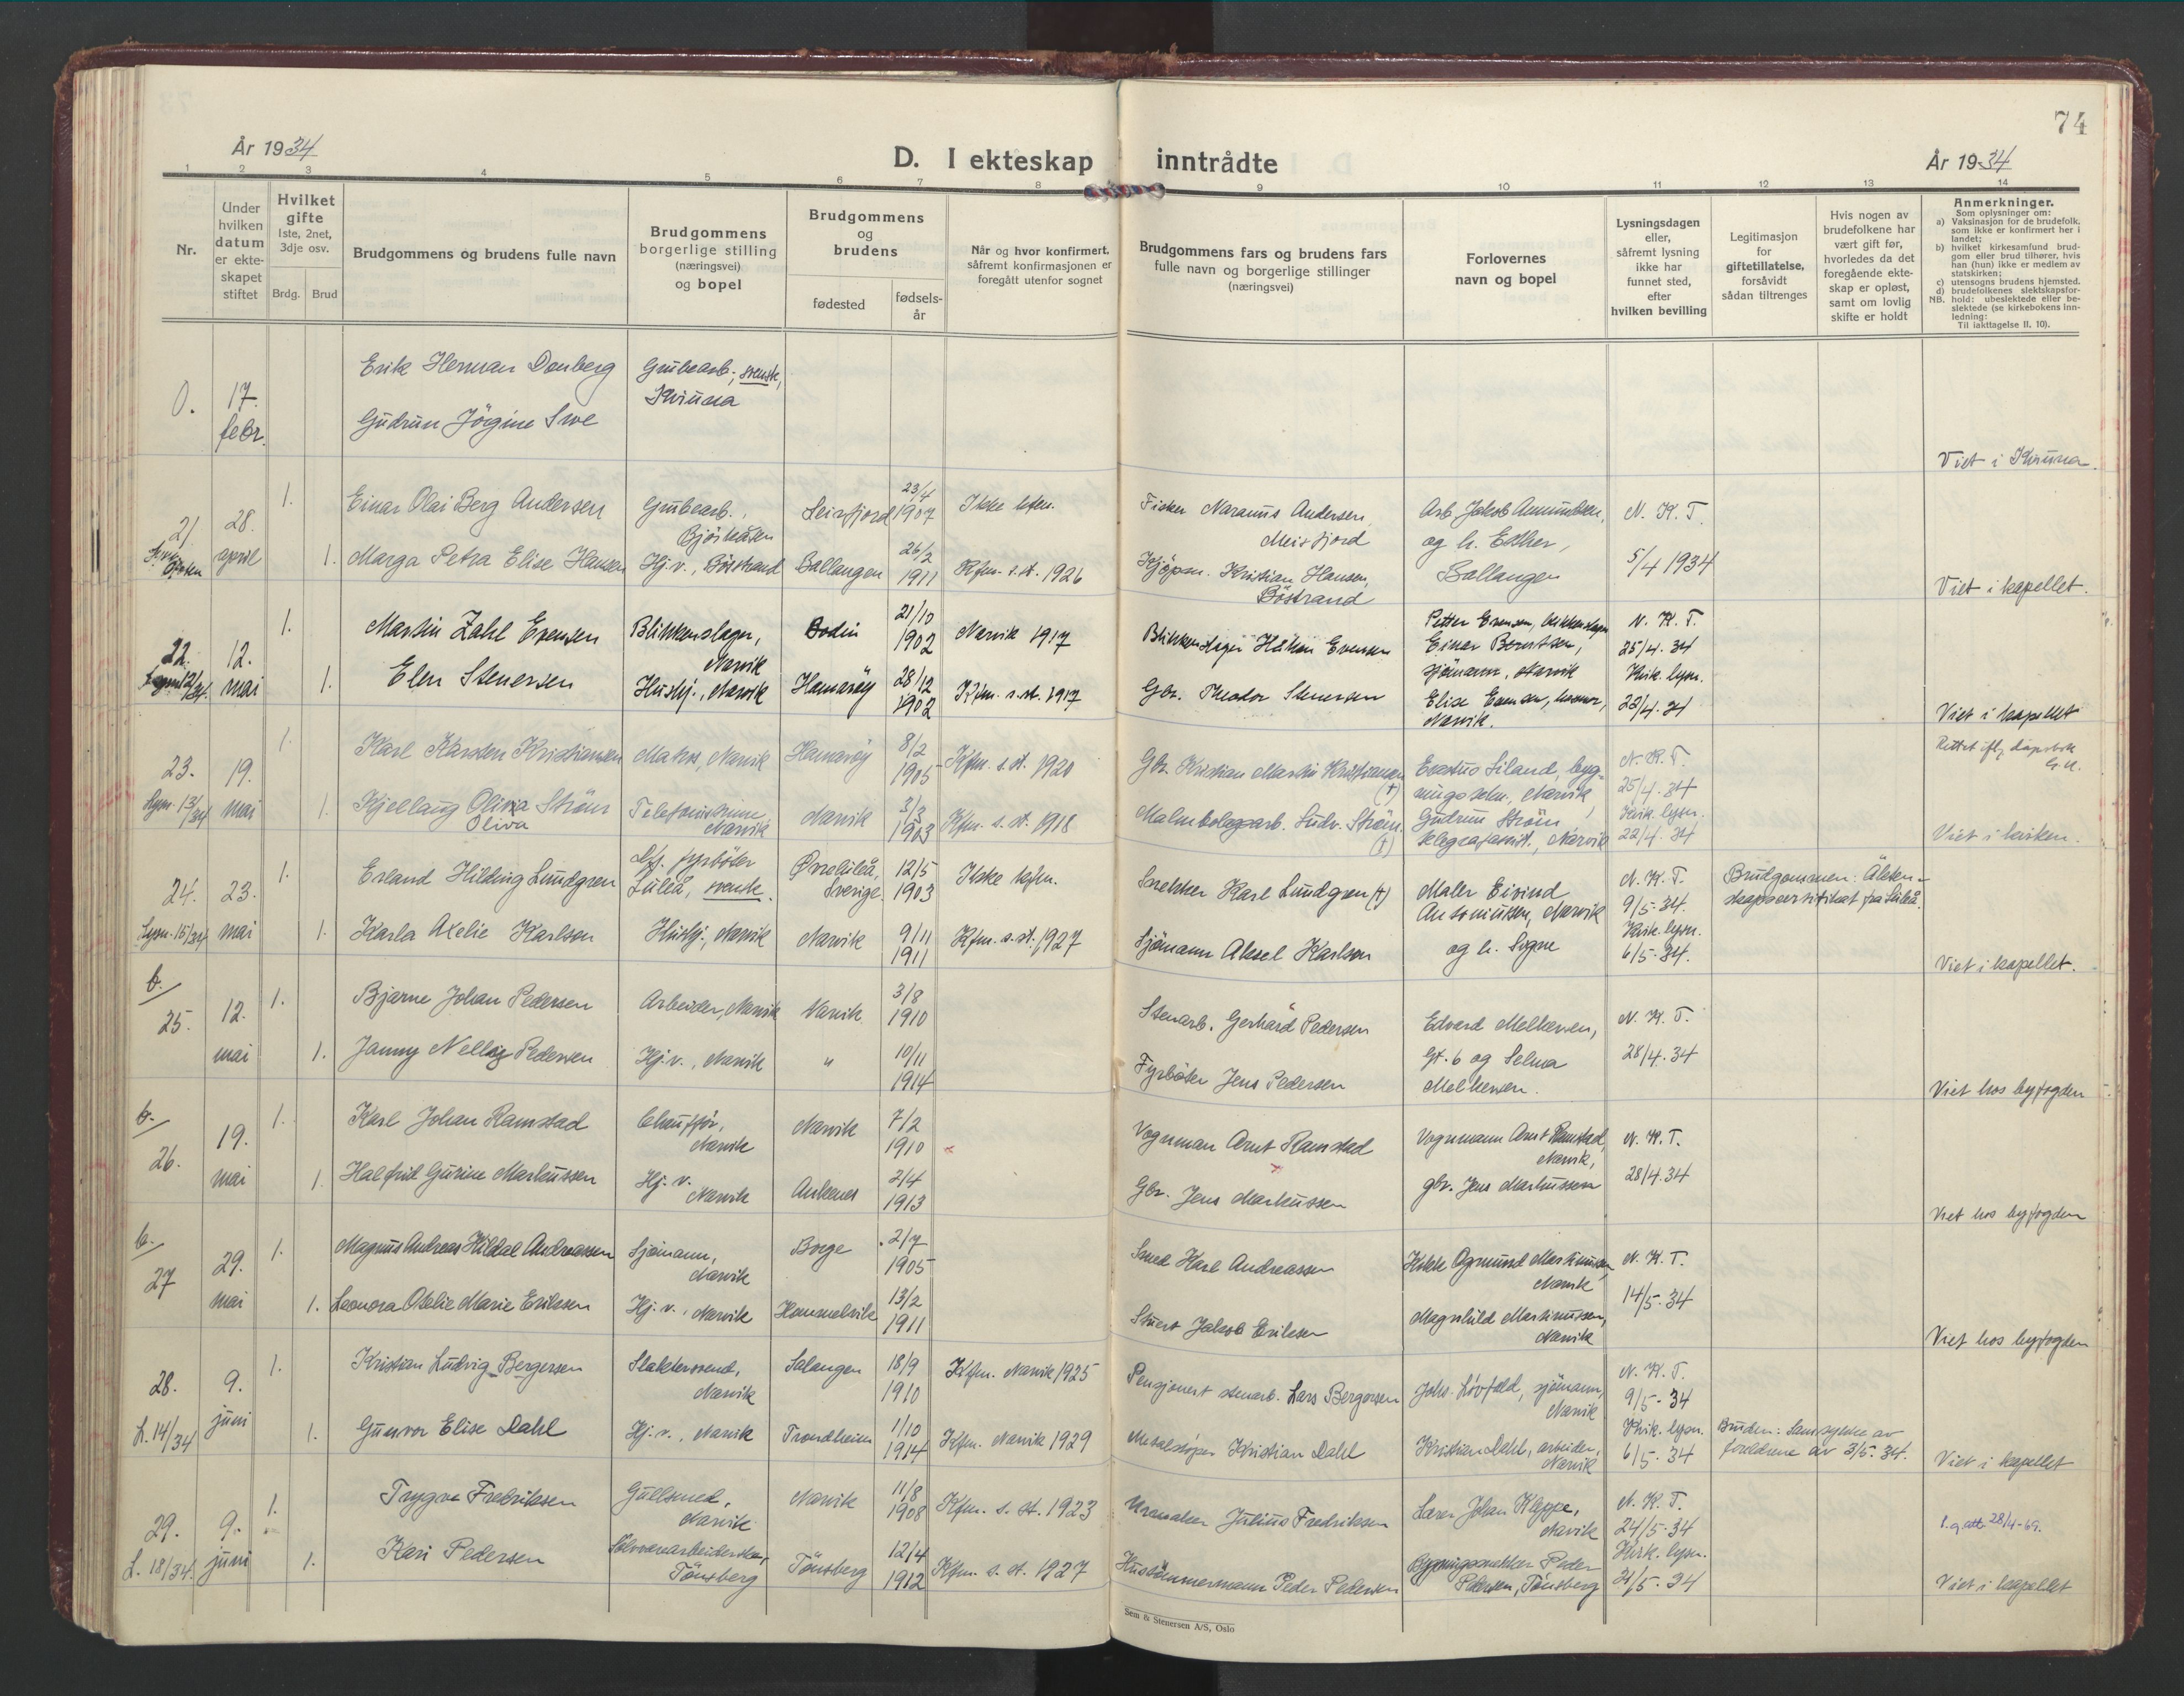 74
År 1934
D. I ekteskap inntrådte
År 1934
1 2 3 4 5 6 7 8 9 10 11 12 13 14
Nr.
Under
hvilken
datum
er ekte-
skapet
stiftet
Hvilket
gifte
1ste, 2net,
3dje osv.
Brdg. Brud
Brudgommens og brudens fulle navn
Brudgommens
borgerlige stilling
(næringsvei)
og bopel
Brudgommens
og
brudens
fødested
fødsels-
år
Når og hvor konfirmert,
såfremt konfirmasjonen er
foregått utenfor sognet
Brudgommens fars og brudens fars
fulle navn og borgerlige stillinger
(næringsvei)
Forlovernes
navn og bopel
Lysningsdagen
eller,
såfremt lysning
ikke har
funnet sted,
efter
hvilken bevilling
Legitimasjon
for
giftetillatelse,
forsåvidt
sådan tiltrenges
Hvis nogen av
brudefolkene har
vært gift før,
hvorledes da det
foregående ekte-
skap er opløst,
samt om lovlig
skifte er holdt
Anmerkninger.
Som oplysninger om:
a) Vaksinasjon for de brudefolk,
som ikke er konfirmert her i
landet;
b) hvilket kirkesamfund brud-
gom eller brud tilhører, hvis
han (hun) ikke er medlem av
statskirken;
c) utensogns brudens hjemsted.
d) brudefolkenes slektskapsfor-
NB. hold: ubeslektede eller be-
slektede (se kirkebokens inn-
ledning:
Til iakttagelse II. 10).
0. 17. febr.
Erik Herman Donberg
Grubearb., svensk,
Kiruna
Gudrun Jörgine
Viet i Kiruna.
21. 28. april
1. Einar Olai Berg Andersen
Grubearb.,
Leirfjord 23/4 1907
Ikke kfm.
Fisker Andersen,
Meisfjord
Arb. Jakob
og h. Esther,
Ballangen
N. K. T.
5/4 1934
1. Marga Petra Elise Hansen
Hj.v., Böstrand
Ballangen 26/2 1911
Kfm. s. st. 1926
Kjöpm. Kristian Hansen,
Böstrand
Viet i kapellet.
22. 12. mai
1. Martin Zahl Evensen
Blikkenslager,
Narvik
Bodin 21/10 1902
Narvik 1917
Blikkenslager Håkon Evensen
Petter Evensen, blikkenslager
Einar Berntsen,
sjömann, Narvik
N. K. T.
25/4. 34
Kirk. lysn.
22/4. 34
1. Elen Stenersen
Hushj., Narvik
Hamaröy 28/12 1902
Kfm. s. st. 1917
Gbr. Theodor Stenersen
Elise Evensen,
Narvik.
Viet i kapellet
23. 19. mai
Lysn. 13/34
1. Karl Karsten Kristiansen
Narvik
Hamaröy 8/2 1905
Kfm. s. st. 1920
Gbr. Kristian Martin Kristiansen
(†)
Erastus Siland, byg-
Narvik
N. K. T.
25/4. 34
Kirk. lysn.
22/4. 34
1. Kjellaug Olivia Ström
Oliva
Telefonistinne,
Narvik
Narvik 3/3 1903
Kfm. s. st. 1918
Malmbolagarb. Ludv. Ström.
(†)
Gudrun Ström,
telegrafassist., Narvik
Rettet iflg dåpsbok
Viet i kirken.
24. 23. mai
Lysn. 15/34
1. Erland Hilding Lundgren
fyrböter
Luleå, svensk.
Øvreluleå,
Sverige. 12/5 1903
Ikke kfm.
Snekker Karl Lundgren (†)
Maler Eivind
Antoniussen, Narvik
og h. Signe
N. K. T.
9/5-34.
Kirk. lysn.
6/5-34.
Brudgommen: Äkten-
skapscertifikat fra Luleå.
1. Karla Axelie Karlson
Hushj., Narvik
Narvik 9/11 1911
Kfm. s. st. 1927
Sjömann Aksel Karlson
Viet i kapellet.
b. 25. 12. mai
1. Bjarne Johan Pedersen
Arbeider, Narvik
Narvik 3/8 1910
Stenarb. Gerhard Pedersen
Edvard Melkersen,
Gt. 6 og Selma
Melkersen.
N. K. T.
28/4. 34
1. Janny Nelly Pedersen
Hj.v., Narvik
" 10/11 1914
Fyrböter Jens Pedersen
Viet hos byfogden
b. 26. 19. mai
1. Karl Johan Ramstad
Chauffør,
Narvik
Narvik 7/2 1910
Vognman Arnt Ramstad
Vognmann Arnt Ramstad,
Narvik,
gbr. Jens Markussen
N. K. T.
28/4.34
1. Halfrid Gurine Markussen
Hj.v.
Narvik
Ankenes 2/4 1913
Gbr. Jens Markussen
Viet hos byfogden
b. 27 29. mai
1. Magnus Andreas Hildal Andreassen
Sjömann,
Narvik
Borge 2/7 1905
Smed Karl Andreassen
Ogmund Martinussen,
Narvik
Magnhild Martinussen,
Narvik
N. K. T.
14/5. 34
1. Leonora Otelie Marie Eriksen
Hj.v., Narvik
Hommelvik 13/2 1911
Stuert Jakob Eriksen
Viet hos byfogden
28. 9. juni
L. 14/34
1. Kristian Ludvig Bergersen
Slaktersvend,
Narvik
Salangen 18/9 1910
Kfm. Narvik 1925
Pensjonert stenarb. Lars Bergersen
Johs. Løvfald, sjömann,
Narvik
Kristian Dahl, arbeider,
Narvik
N. K. T.
9/5-34
Kirk. lysn.
6/5-34
1. Gunvor Elise Dahl
Hj.v., Narvik
Trondheim 1/10 1914
Kfm. Narvik 1929
Metalstøper Kristian Dahl
Bruden: Samtykke av
foreldrene av 3/5. 34.
Viet i kapellet
29. 9. juni
L. 18/34.
1. Trygve Fredriksen
Gullsmed,
Narvik
Narvik 11/8 1908
Kfm. s. st. 1923
Urmaker Julius Fredriksen
Lærer Johan Kleppe,
Narvik
Bygningssnekker Peder
Pedersen, Tönsberg
N. K. T.
24/5-34
Kirk. lysn.
21/5-34
1. Kari Pedersen
Sølvvarearbeiderske,
Tönsberg
Tönsberg 12/4 1912
Kfm. s. st. 1927
Hustömmermann Peder Pedersen
l.g.att. 28/4-69.
Viet i kapellet
Sem & Stenersen A/S, Oslo